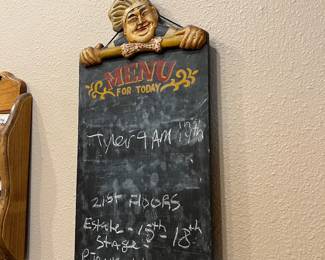 MENU
FOR TODAY
Tyler 9 AM
21ST FLOORS
Estate - 15th - 18th
Stage -